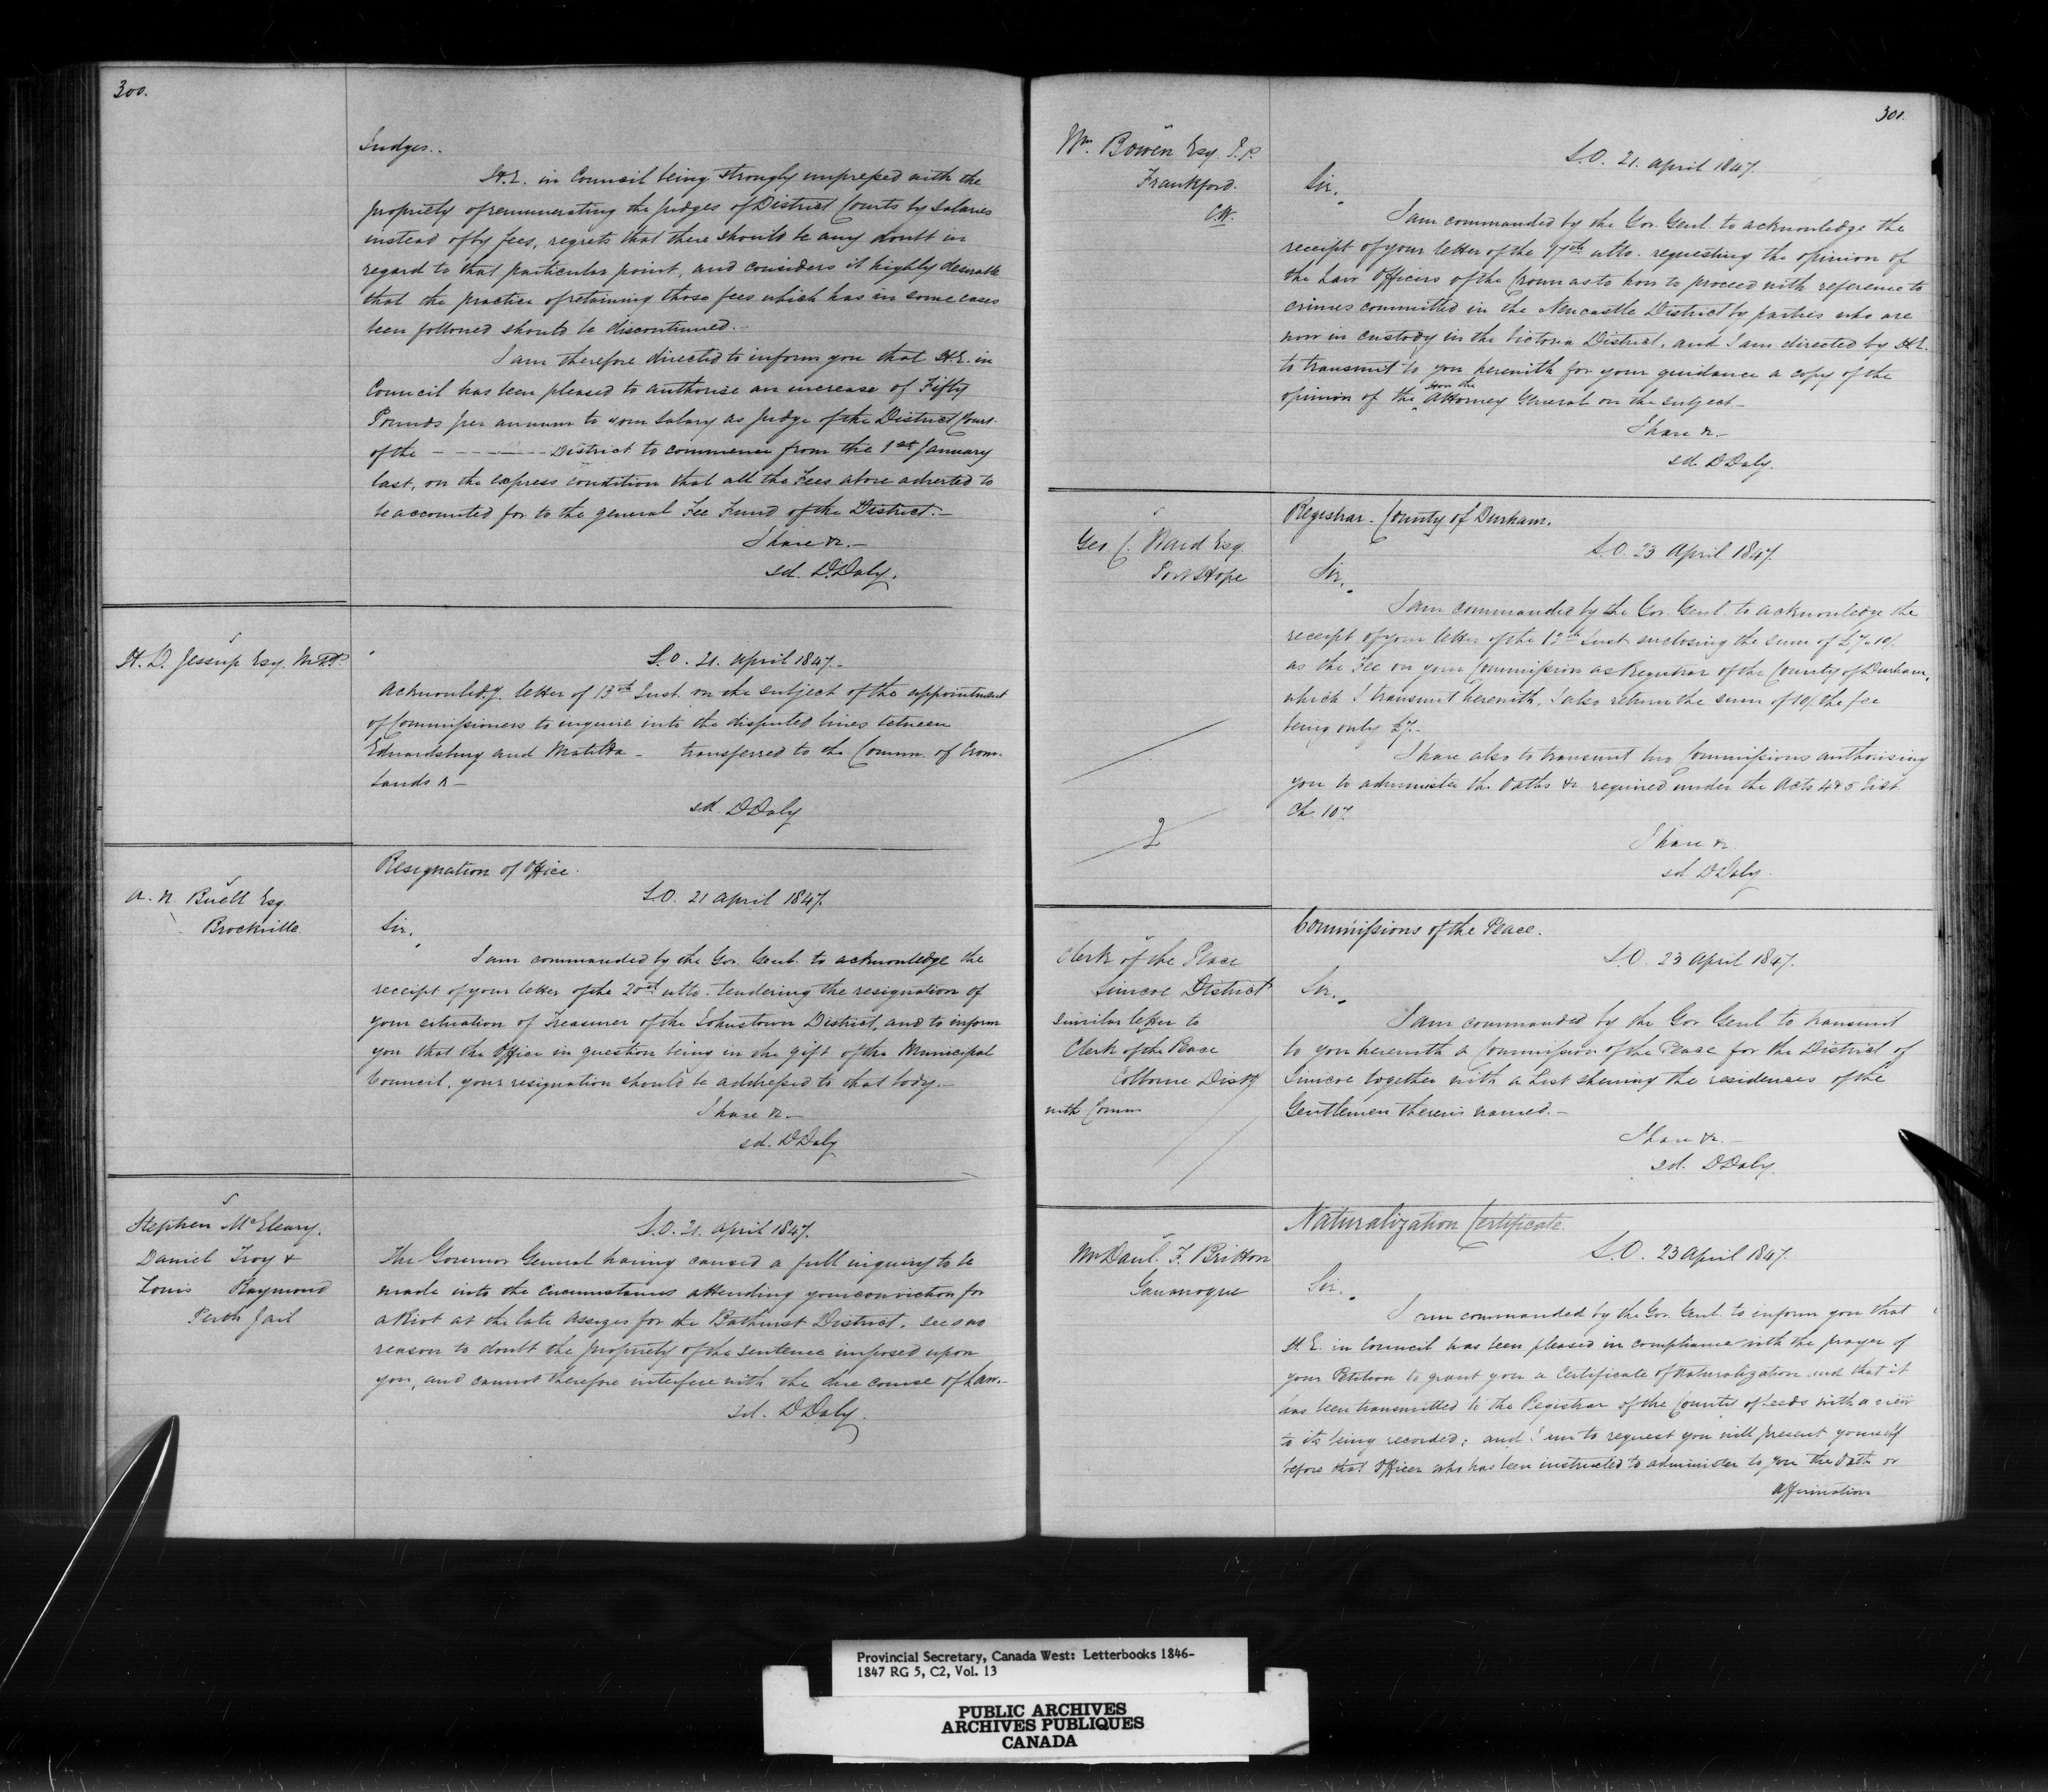 300.
Judges..
H.E. in Council being strongly impressed with the
propriety of remunerating the Judges of District Courts by salaries
instead of by fees, regrets that there should be any doubt in
regard to that particular point, and considers it highly desirable
that the practice of retaining those fees which has in some cases
been followed should be discontinued.
I am therefore directed to inform you that H.E. in
Council has been pleased to authorise an increase of Fifty
Pounds per annum to your salary as Judge of the District Court
of the - - - - - District to commence from the 1st January
last, on the express condition that all the Fees above adverted to
be accounted for to the general Fee Fund of the District.-
I have &c.-
sd. D. Daly.
H. D. Jessup Esq. M.P.P.
S.O. 21. April 1847.-
Acknowledg. letter of 13th Inst. on the subject of the appointment
of Commissioners to inquire into the disputed lines between
Edwardsburg and Matilda - transferred to the Commr. of Crown
Lands &-
sd. D Daly
A. N. Buell Esq.
Brockville
Resignation of Office.
S.O. 21 April 1847.
Sir,
I am commanded by the Gov. Genl. to acknowledge the
receipt of your letter of the 20th ulto. tendering the resignation of
your situation of Treasurer of the Johnstown District, and to inform
you that the Office in question being in the gift of the Municipal
Council, your resignation should be addressed to that body.-
I have &c.-
sd. D Daly
Stephen McEleary,
Daniel Troy &
Louis Raymond
Perth Jail
S.O. 21. April 1847.
The Governor General having caused a full inquiry to be
made into the circumstances attending your conviction for
a Riot at the late Assizes for the Bathurst District, sees no
reason to doubt the propriety of the sentence imposed upon
you, and cannot therefore interfere with the due course of Law.-
sd. D Daly.
301.
Wm. Bowen Esq. J.P.
Frankford.
C.W.
S.O. 21. April 1847.
Sir,
I am commanded by the Gov. Genl. to acknowledge the
receipt of your letter of the 17th ulto. requesting the opinion of
the Law Officers of the Crown as to how to proceed with reference to
crimes committed in the Newcastle District by parties who are
now in custody in the Victoria District, and I am directed by H.E.
to transmit to you herewith for your guidance a copy of the
opinion of the Hon the Attorney General on the subject-
I have &c.-
sd. D Daly.
Geo C. Ward Esq.
Port Hope
2
Registrar. County of Durham.
S.O. 23 April 1847.
Sir,
I am commanded by the Gov. Genl. to acknowledge the
receipt of your letter of the 13th Inst enclosing the sum of £7.10/.
as the Fee on your Commission as Registrar of the County of Durham,
which I transmit herewith, I also return the sum of 10/. the fee
being only £7.-
I have also to transmit two Commissions authorising
you to administer the Oaths &c. required under the Acts 4 & 5 Vict.
Ch. 107.
I have &c.
sd D Daly.
Clerk of the Peace
Simcoe District
similar letter to
Clerk of the Peace
Colborne Distr
with Comm
Commissions of the Peace.
S.O. 23 April 1847.
Sir,
I am commanded by the Gov Genl to transmit
to you herewith a Commission of the Peace for the District of
Simcoe together with a List shewing the residences of the
Gentlemen therein named.-
I have &c.-
sd. D Daly.
Mr Danl. F. Britton
Gananoque
Naturalization Certificate.
S.O. 23 April 1847.
Sir,
I am commanded by the Gov. Genl. to inform you that
H.E. in Council has been pleased in compliance with the prayer of
your Petition to grant you a Certificate of Naturalization and that it
has been transmitted to the Registrar of the County of Leeds with a view
to its being recorded; and I am to request you will present yourself
before that Officer who has been instructed to administer to you the Oath or
Affirmation
Provincial Secretary, Canada West: Letterbooks 1846-
1847 RG 5, C2, Vol. 13
PUBLIC ARCHIVES
ARCHIVES PUBLIQUES
CANADA